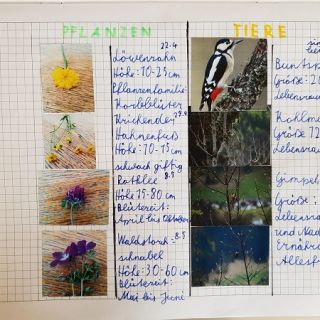 PFLANZEN
22.4
Löwenzahn
Höhe: 10-25 cm
Pflanzenfamilie:
Korbblütler
Kriechender 29.4
Hahnenfuß
Höhe: 10-15 cm
schwach giftig
Rotklee 8.5
Höhe 15-80 cm
Blütezeit:
April bis Oktober
Waldstorch- 8.5
schnabel
Höhe: 30-60 cm
Blütezeit:
Mai bis Juni
TIERE
Größe:
Lebensrau
Kohlme
Größe
Lebensra
Gimpel
Größe:
Lebensra
und Nad
Ernähru
Allesf